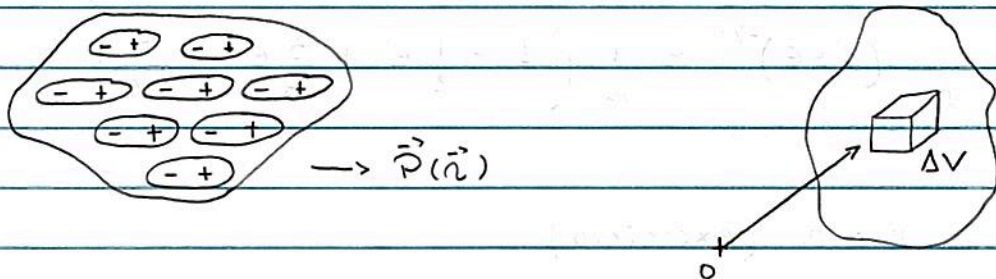 - + - +
- + - + - +
- + - +
- +
→ P⃗(r⃗)
ΔV
O